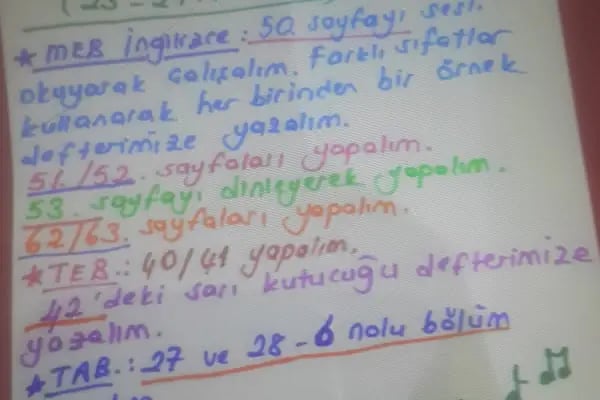 (23-2
* MEB İngilizce: 50. sayfayı sesli
okuyarak çalışalım. Farklı sıfatlar
kullanarak her birinden bir örnek
defterimize yazalım.
51./52. sayfaları yapalım.
53. sayfayı dinleyerek yapalım.
62/63. sayfaları yapalım.
* TEB.: 40/41 yapalım.
42'deki sarı kutucuğu defterimize
yazalım.
* TAB.: 27 ve 28-6 nolu bölüm